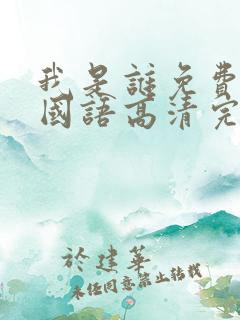 我是誰免費
國語高清完
於建華
未经同意禁止转载